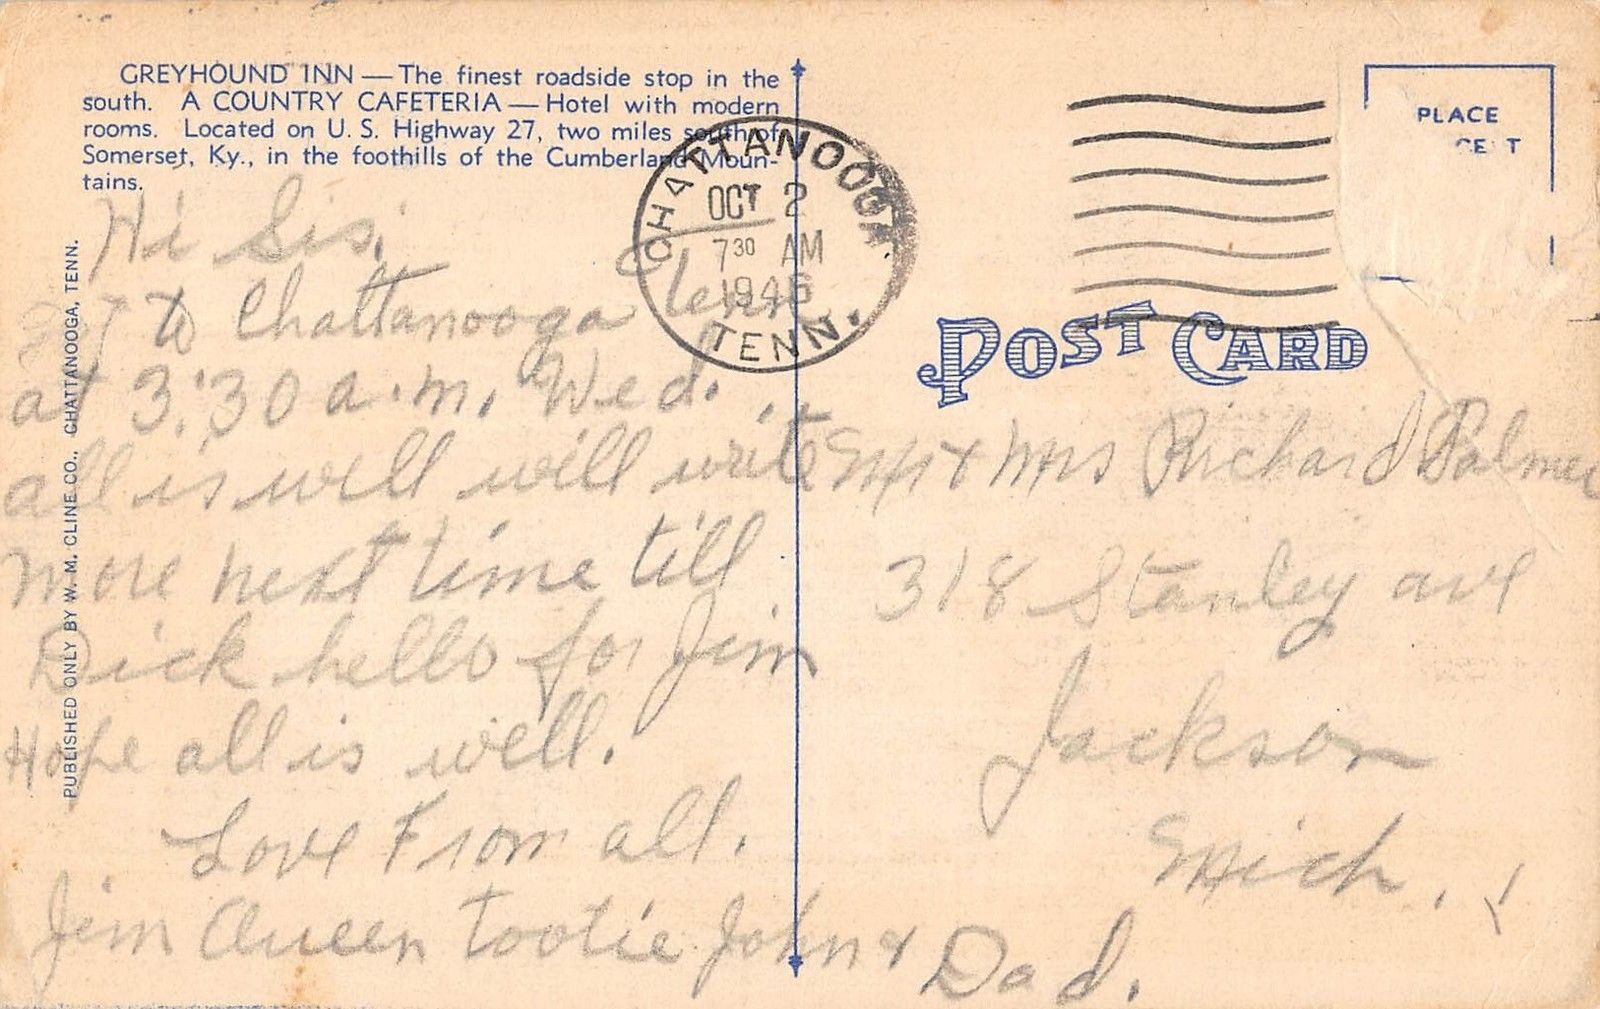 GREYHOUND INN — The finest roadside stop in the
south. A COUNTRY CAFETERIA — Hotel with modern
rooms. Located on U. S. Highway 27, two miles south of
Somerset, Ky., in the foothills of the Cumberland Moun-
tains.
PUBLISHED ONLY BY W. M. CLINE CO., CHATTANOOGA, TENN.
Hi Sis.
got to Chattanooga Tenn.
at 3:30 a.m. Wed.
all is well will write
more next time till
Dick hello for Jim
Hope all is well.
Love From all.
Jim Queen tootie John & Dad.
CHATTANOOGA
OCT 2
7 30 AM
1946
TENN.
PLACE
POST CARD
Mr & Mrs Richard Palmer
318 Stanley ave
Jackson
Mich.